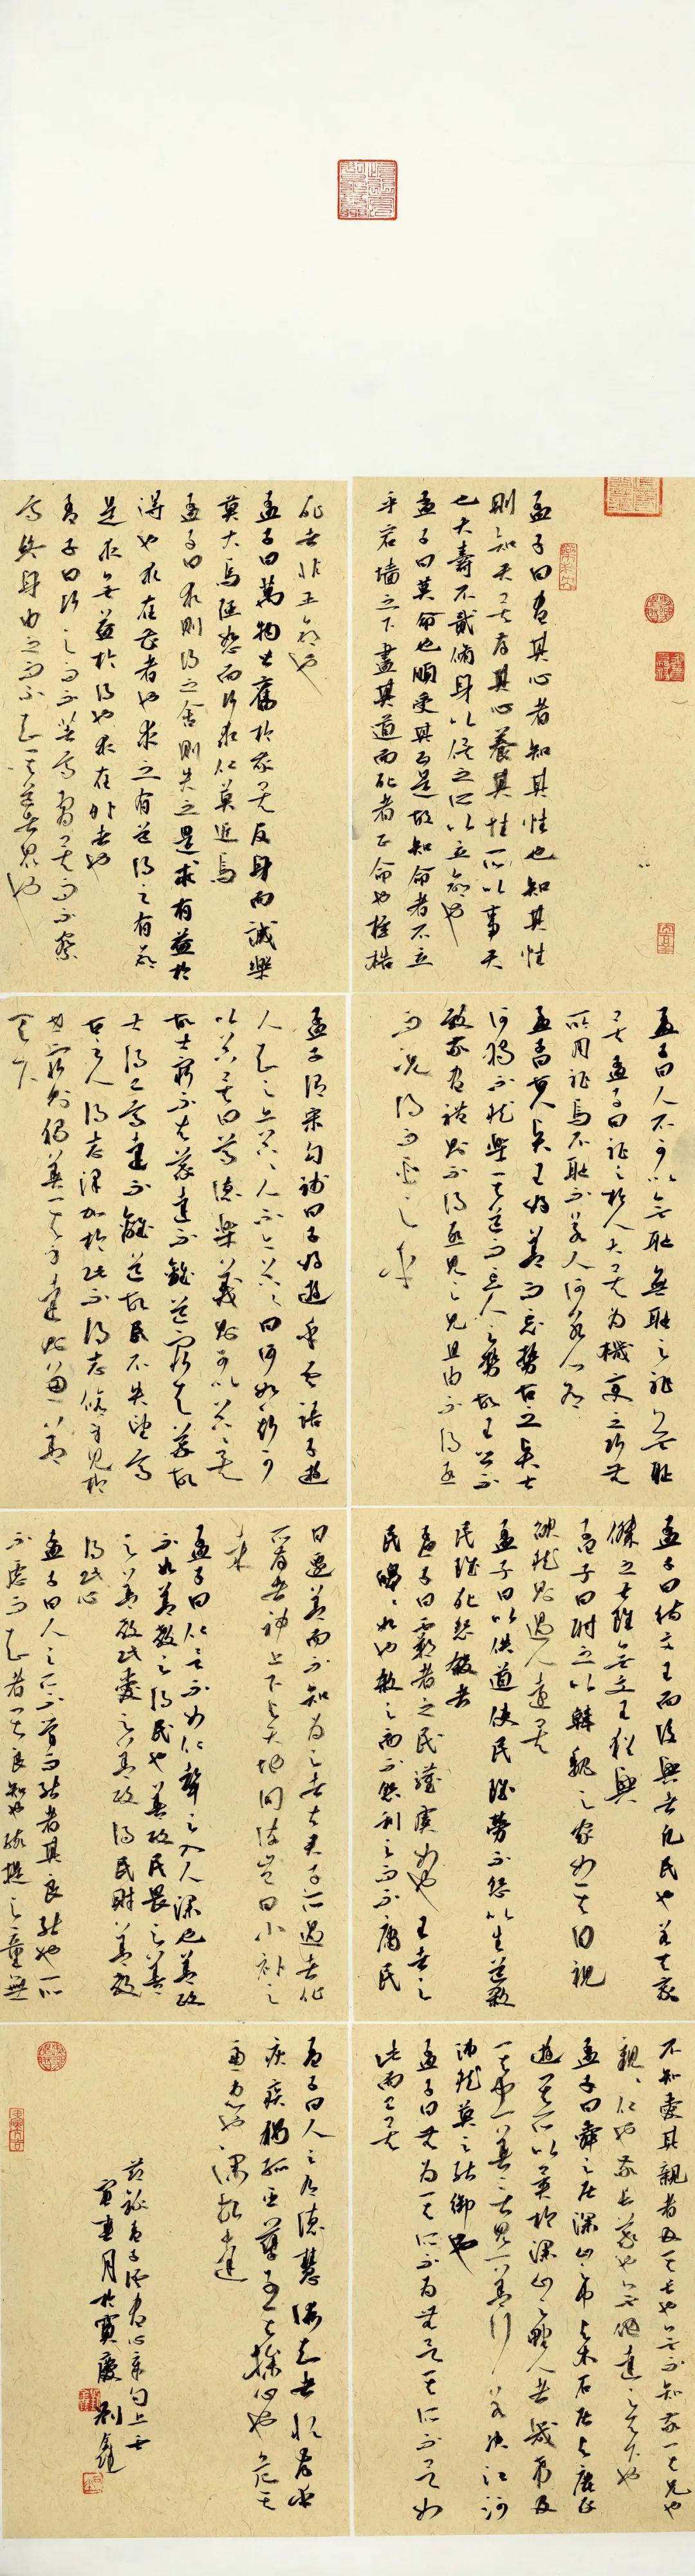 孟子曰盡其心者知其性也知其性
則知天矣存其心養其性所以事天
也夭壽不貳脩身以俟之所以立命也
孟子曰莫命也順受其正是故知命者不立
乎岩墻之下盡其道而死者正命也桎梏
死者非正命也
孟子曰萬物皆備於我矣反身而誠樂
莫大焉强恕而行求仁莫近焉
孟子曰求則得之舍則失之是求有益於
得也求在我者也求之有道得之有命
是求無益於得也求在外者也
孟子曰行之而不著焉習矣而不察
焉終身由之而不知其道者衆也
孟子曰人不可以無恥無恥之恥無恥
矣孟子曰恥之於人大矣為機變之巧者無
所用恥焉不恥不若人何若人有
孟子曰古之賢王好善而忘勢古之賢士
何獨不然樂其道而忘人之勢故王公不
致敬盡禮則不得亟見之見且由不得亟
而況得而臣之乎
孟子謂宋勾踐曰子好遊乎吾語子遊
人知之亦囂囂人不知亦囂囂曰何如斯可
以囂囂矣曰尊德樂義則可以囂囂矣
故士窮不失義達不離道窮不失義故
士得己焉達不離道故民不失望焉
古之人得志澤加於民不得志脩身見於
世窮則獨善其身達則兼善
天下
孟子曰待文王而後興者凡民也若夫豪
傑之士雖無文王猶興
孟子曰附之以韓魏之家如其自視
欿然則過人遠矣
孟子曰以佚道使民雖勞不怨以生道殺
民雖死不怨殺者
孟子曰霸者之民驩虞如也王者之
民皞皞如也殺之而不怨利之而不庸民
日遷善而不知為之者夫君子所過者化
所存者神上下與天地同流豈曰小補之
哉
孟子曰仁言不如仁聲之入人深也善政
不如善教之得民也善政民畏之善
教民愛之善政得民財善教
得民心
孟子曰人之所不學而能者其良能也所
不慮而知者其良知也孩提之童無
不知愛其親者及其長也無不知敬其兄也
親親仁也敬長義也無他達之天下也
孟子曰舜之居深山之中與木石居與鹿豕
遊其所以異於深山之野人者幾希及
其聞一善言見一善行若決江河
沛然莫之能禦也
孟子曰無為其所不為無欲其所不欲如
此而已矣
孟子曰人之有德慧術知者恒存乎
疢疾獨孤臣孽子其操心也危其
慮患也深故達